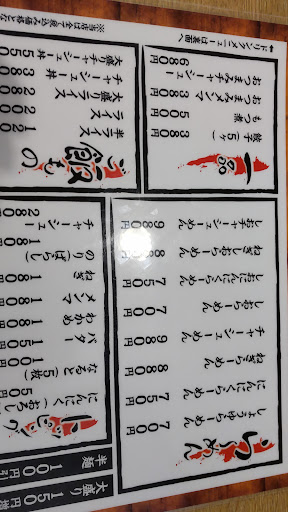 らーめん
しょうゆらーめん 700円
にんにくらーめん 750円
ねぎらーめん 880円
チャーシューめん 980円
しおらーめん 700円
しおにんにくらーめん 750円
ねぎしおらーめん 880円
しおチャーシューめん 980円
餃子(5ヶ) 380円
もつ煮 500円
おつまみメンマ 380円
おつまみチャーシュー 680円
←ドリンクメニューは裏面へ
大盛り 150円増
半麺 100円引
にんにく(おろし) 50円
なると(5枚) 100円
バター 150円
わかめ 180円
メンマ 180円
ねぎ 180円
のり(ばらし) 180円
チャーシュー 280
飯もの
半ライス 120
ライス 200
大盛りライス 280
チャーシュー丼 380
大盛りチャーシュー丼 550
※当店は全て税込み価格とな